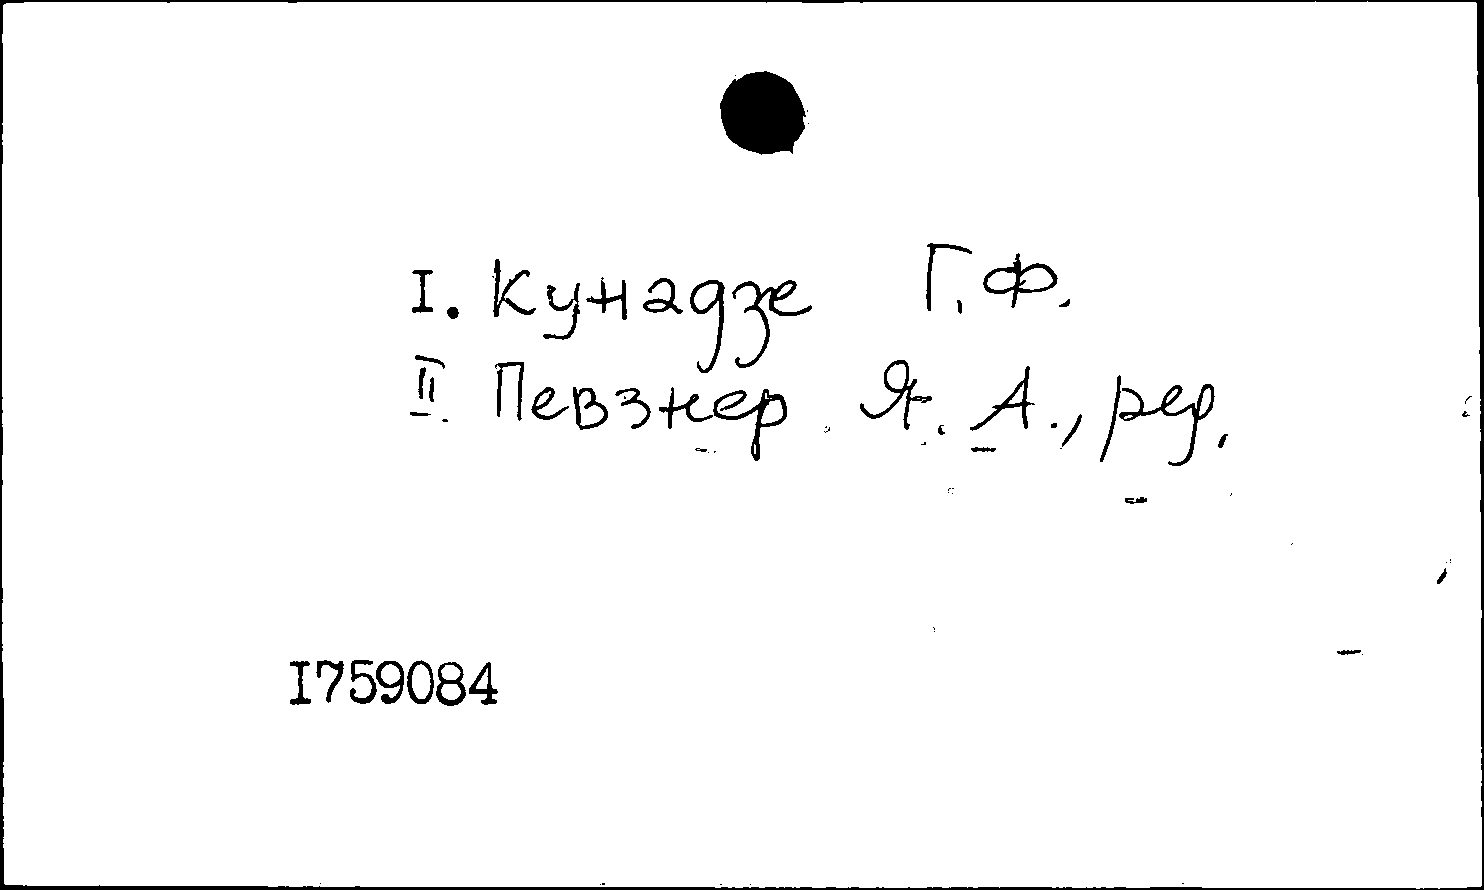 I. Кунадзе Г. Ф.
II Певзнер Я. А., ред.
I759084